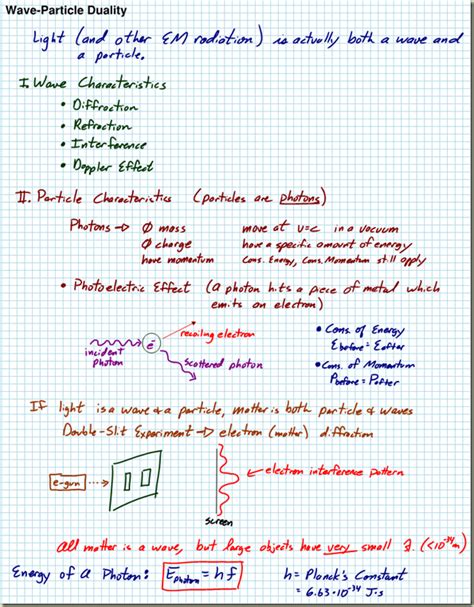 Wave-Particle Duality
Light (and other EM radiation) is actually both a wave and
a particle.
I. Wave Characteristics
• Diffraction
• Refraction
• Interference
• Doppler Effect
II. Particle Characteristics (particles are photons)
Photons → Ø mass move at v=c in a vacuum
Ø charge have a specific amount of energy
have momentum Cons. Energy, Cons. Momentum still apply
• Photoelectric Effect (a photon hits a piece of metal which
emits an electron)
recoiling electron
e⁻
incident
photon
scattered photon
• Cons. of Energy
Ebefore = Eafter
• Cons. of Momentum
Pbefore = Pafter
If light is a wave & a particle, matter is both particle & waves
Double-Slit Experiment → electron (matter) diffraction
e-gun
electron interference pattern
screen
All matter is a wave, but large objects have very small λ. (<10⁻³⁴m)
Energy of a Photon: Ephoton = hf h = Planck's Constant
= 6.63 × 10⁻³⁴ J·s